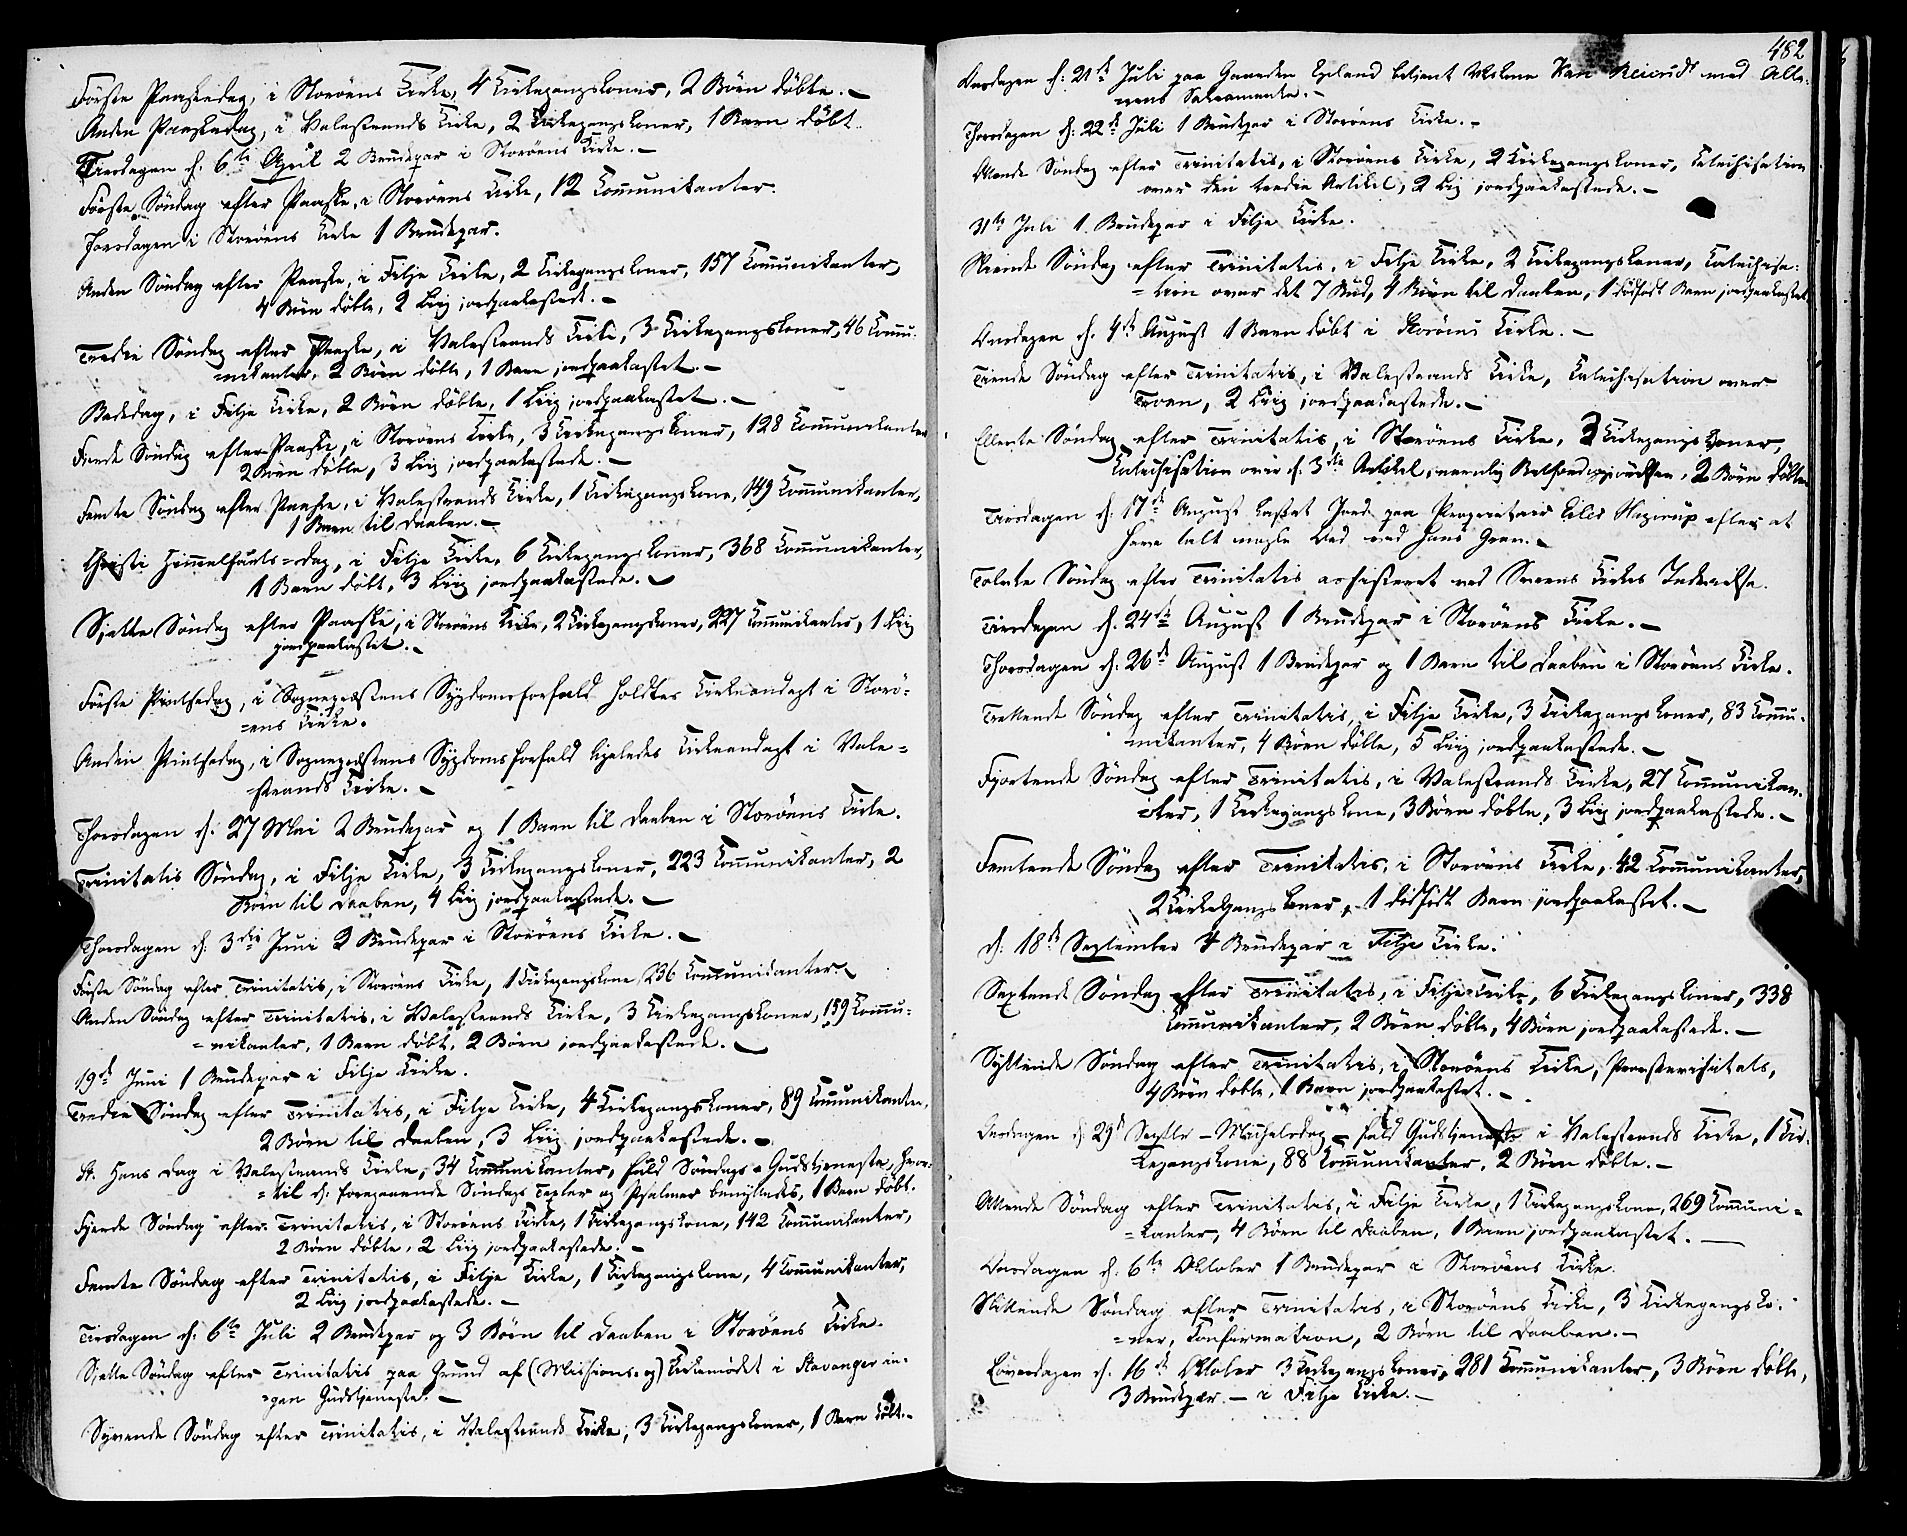 Første Paaskedag, i Storøens Kirke, 4 Kirkegangskoner, 2 Børn døbte. —
Anden Paaskedag, i Valestrands Kirke, 2 Kirkegangskoner, 1 Barn døbt.
Tirsdagen d: 6te April 2 Brudepar i Storøens Kirke. —
Første Søndag efter Paaske, i Storøens Kirke, 12 Communikanter.
Torsdagen i Storøens Kirke 1 Brudepar.
Anden Søndag efter Paaske, i Fitje Kirke, 2 Kirkegangskoner, 157 Communikanter,
4 Børn døbte, 2 Liig jordpaakastede. —
Tredie Søndag efter Paaske, i Valestrands Kirke, 3 Kirkegangskoner, 46 Commu-
=nikanter, 2 Børn døbte, 1 Barn jordpaakastet. —
Bededag, i Fitje Kirke, 2 Børn døbte, 1 Liig jordpaakastet. —
Fierde Søndag efter Paaske, i Storøens Kirke, 3 Kirkegangskoner, 128 Communikanter
2 Børn døbte, 3 Liig jordpaakastede. —
Femte Søndag efter Paaske, i Valestrands Kirke, 1 Kirkegangskone, 149 Communikanter,
1 Barn til Daaben. —
Christi Himmelfarts=dag, i Fitje Kirke, 6 Kirkegangskoner, 368 Communikanter,
1 Barn døbt, 3 Liig jordpaakastede. —
Sjette Søndag efter Paaske, i Storøens Kirke, 2 Kirkegangskoner, 227 Communikanter, 1 Liig
jordpaakastet. —
Første Pintsedag, i Sognepræstens Sygdomsforfald holdtes Kirkeandagt i Storø-
=ens Kirke.
Anden Pintsedag, i Sognepræstens Sygdomsforfald ligeledes Kirkeandagt i Vale=
strands Kirke. —
Thorsdagen d: 27 Mai 2 Brudepar og 1 Barn til Daaben i Storøens Kirke.
Trinitatis Søndag, i Fitje Kirke, 3 Kirkegangskoner, 223 Communikanter, 2
Børn til Daaben, 4 Liig jordpaakastede. —
Thorsdagen d: 3die Juni 2 Brudepar i Storøens Kirke. —
Første Søndag efter Trinitatis, i Storøens Kirke, 1 Kirkegangskone, 236 Communikanter. —
Anden Søndag efter Trinitatis, i Valestrands Kirke, 3 Kirkegangskoner, 159 Commu-
=nikanter, 1 Barn døbt, 2 Børn jordpaakastede. —
19de Juni 1 Brudepar i Fitje Kirke.
Tredie Søndag efter Trinitatis, i Fitje Kirke, 4 Kirkegangskoner, 89 Communikanter,
2 Børn til Daaben, 3 Liig jordpaakastede. —
St. Hans Dag i Valestrands Kirke, 34 Communikanter, fuld Søndags=Gudstjeneste, hvor-
=til d: foregaaende Søndags Texter og Psalmer benyttedes, 1 Barn døbt.
Fjerde Søndag efter Trinitatis, i Storøens Kirke, 1 Kirkegangskone, 142 Communikanter,
2 Børn døbte, 2 Liig jordpaakastede. —
Femte Søndag efter Trinitatis, i Fitje Kirke, 1 Kirkegangskone, 4 Communikanter,
2 Liig jordpaakastede. —
Tirsdagen d: 6te Juli 2 Brudepar og 3 Børn til Daaben i Storøens Kirke.
Sjette Søndag efter Trinitatis paa Grund af (Missions- og) Kirkemødet i Stavanger in-
=gen Gudstjeneste. —
Syvende Søndag efter Trinitatis, i Valestrands Kirke, 3 Kirkegangskoner, 1 Barn døbt. —
482
Onsdagen d: 21de Juli paa Gaarden betjent med Alte-
rens Sakramente. —
Thorsdagen d: 22de Juli 1 Brudepar i Storøens Kirke. —
Ottende Søndag efter Trinitatis, i Storøens Kirke, 2 Kirkegangskoner, Katechisation
over den tredie Artikel, 2 Liig jordpaakastede. —
31te Juli 1 Brudepar i Fitje Kirke.
Niende Søndag efter Trinitatis, i Fitje Kirke, 2 Kirkegangskoner, Katechisa-
=tion over det 7 Bud, 4 Børn til Daaben, 1 dødfødt Barn jordpaakastet.
Onsdagen d: 4de August 1 Barn døbt i Storøens Kirke. —
Tiende Søndag efter Trinitatis, i Valestrands Kirke, Katechisation over
Troen, 2 Liig jordpaakastede. —
Ellevte Søndag efter Trinitatis, i Storøens Kirke, 3 Kirkegangskoner,
Katechisation over d: 3die Artikel, nemlig Retfærdiggjørelsen, 2 Børn døbte
Tirsdagen d: 17de August kastet Jord paa Proprietair efter at
have talt nogle Ord ved hans Grav. —
Tolvte Søndag efter Trinitatis assisteret ved Kirkes Indvielse.
Tirsdagen d: 24de August 1 Brudepar i Storøens Kirke. —
Thorsdagen d: 26de August 1 Brudepar og 1 Barn til Daaben i Storøens Kirke.
Trettende Søndag efter Trinitatis, i Fitje Kirke, 3 Kirkegangskoner, 83 Commu-
nikanter, 4 Børn døbte, 5 Liig jordpaakastede. —
Fjortende Søndag efter Trinitatis, i Valestrands Kirke, 27 Communikan-
=ter, 1 Kirkegangskone, 3 Børn døbte, 3 Liig jordpaakastede. —
Femtende Søndag efter Trinitatis, i Storøens Kirke, 42 Communikanter,
2 Kirkegangskoner, 1 dødfødt Barn jordpaakastet. —
d: 18de September 4 Brudepar i Fitje Kirke.
Sextende Søndag efter Trinitatis, i Fitje Kirke, 6 Kirkegangskoner, 338
Communikanter, 2 Børn døbte, 4 Børn jordpaakastede. —
Syttende Søndag efter Trinitatis, i Storøens Kirke, Provstevisitats,
4 Børn døbte, 1 Barn jordpaakastet. —
Onsdagen d: 29de Septbr — Michelsdag — fuld Gudstjeneste i Valestrands Kirke, 1 Kir-
kegangskone, 88 Communikanter, 2 Børn døbte. —
Attende Søndag efter Trinitatis, i Fitje Kirke, 1 Kirkegangskone, 269 Communi=
=kanter, 4 Børn til Daaben, 1 Barn jordpaakastet. —
Onsdagen d: 6te Oktober 1 Brudepar i Storøens Kirke.
Nittende Søndag efter Trinitatis, i Storøens Kirke, 3 Kirkegangsko-
=ner, Confirmation, 2 Børn til Daaben. —
Løverdagen d: 16de Oktober 3 Kirkegangskoner, 281 Communikanter, 3 Børn døbte,
3 Brudepar. — i Fitje Kirke. —